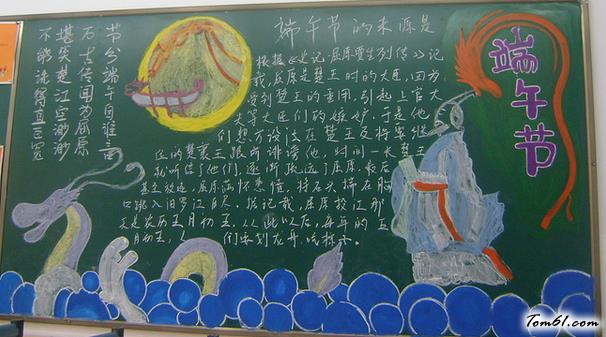 节分端午自谁言
万古传闻为屈原
堪笑楚江空渺渺
不能洗得直臣冤
端午节的来源是
根据《史记·屈原贾生列传》记
载,屈原是楚王时的大臣,因为
受到楚王的重用,引起上官大
夫等大臣们的嫉妒,于是他
们想方设法在楚王及将军继
位的楚襄王跟前诽谤他,时间一长楚王
就听信了他们,逐渐疏远了屈原,最后
甚至放逐,屈原满怀悲愤,将石头绑在胸
口跳入汨罗江自尽,据记载,屈原投江那
天是农历五月初五,从此以后,每年的五
月初五,人们要划龙舟,吃粽子。
端午节
Tom61.com